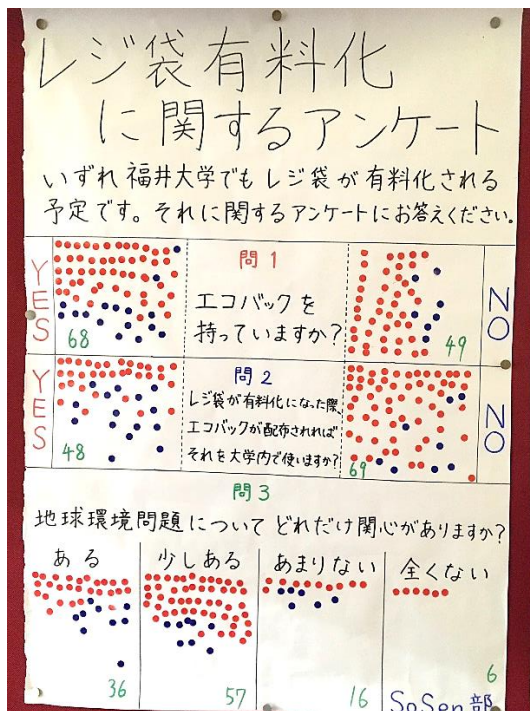 レジ袋有料化
に関するアンケート
いずれ福井大学でもレジ袋が有料化される
予定です。それに関するアンケートにお答えください。
YES
問1
エコバックを
持っていますか?
NO
68
49
YES
問2
レジ袋が有料化になった際、
エコバックが配布されれば
それを大学内で使いますか?
NO
48
69
問3
地球環境問題についてどれだけ関心がありますか?
ある
少しある
あまりない
全くない
36
57
16
6
SoSen部